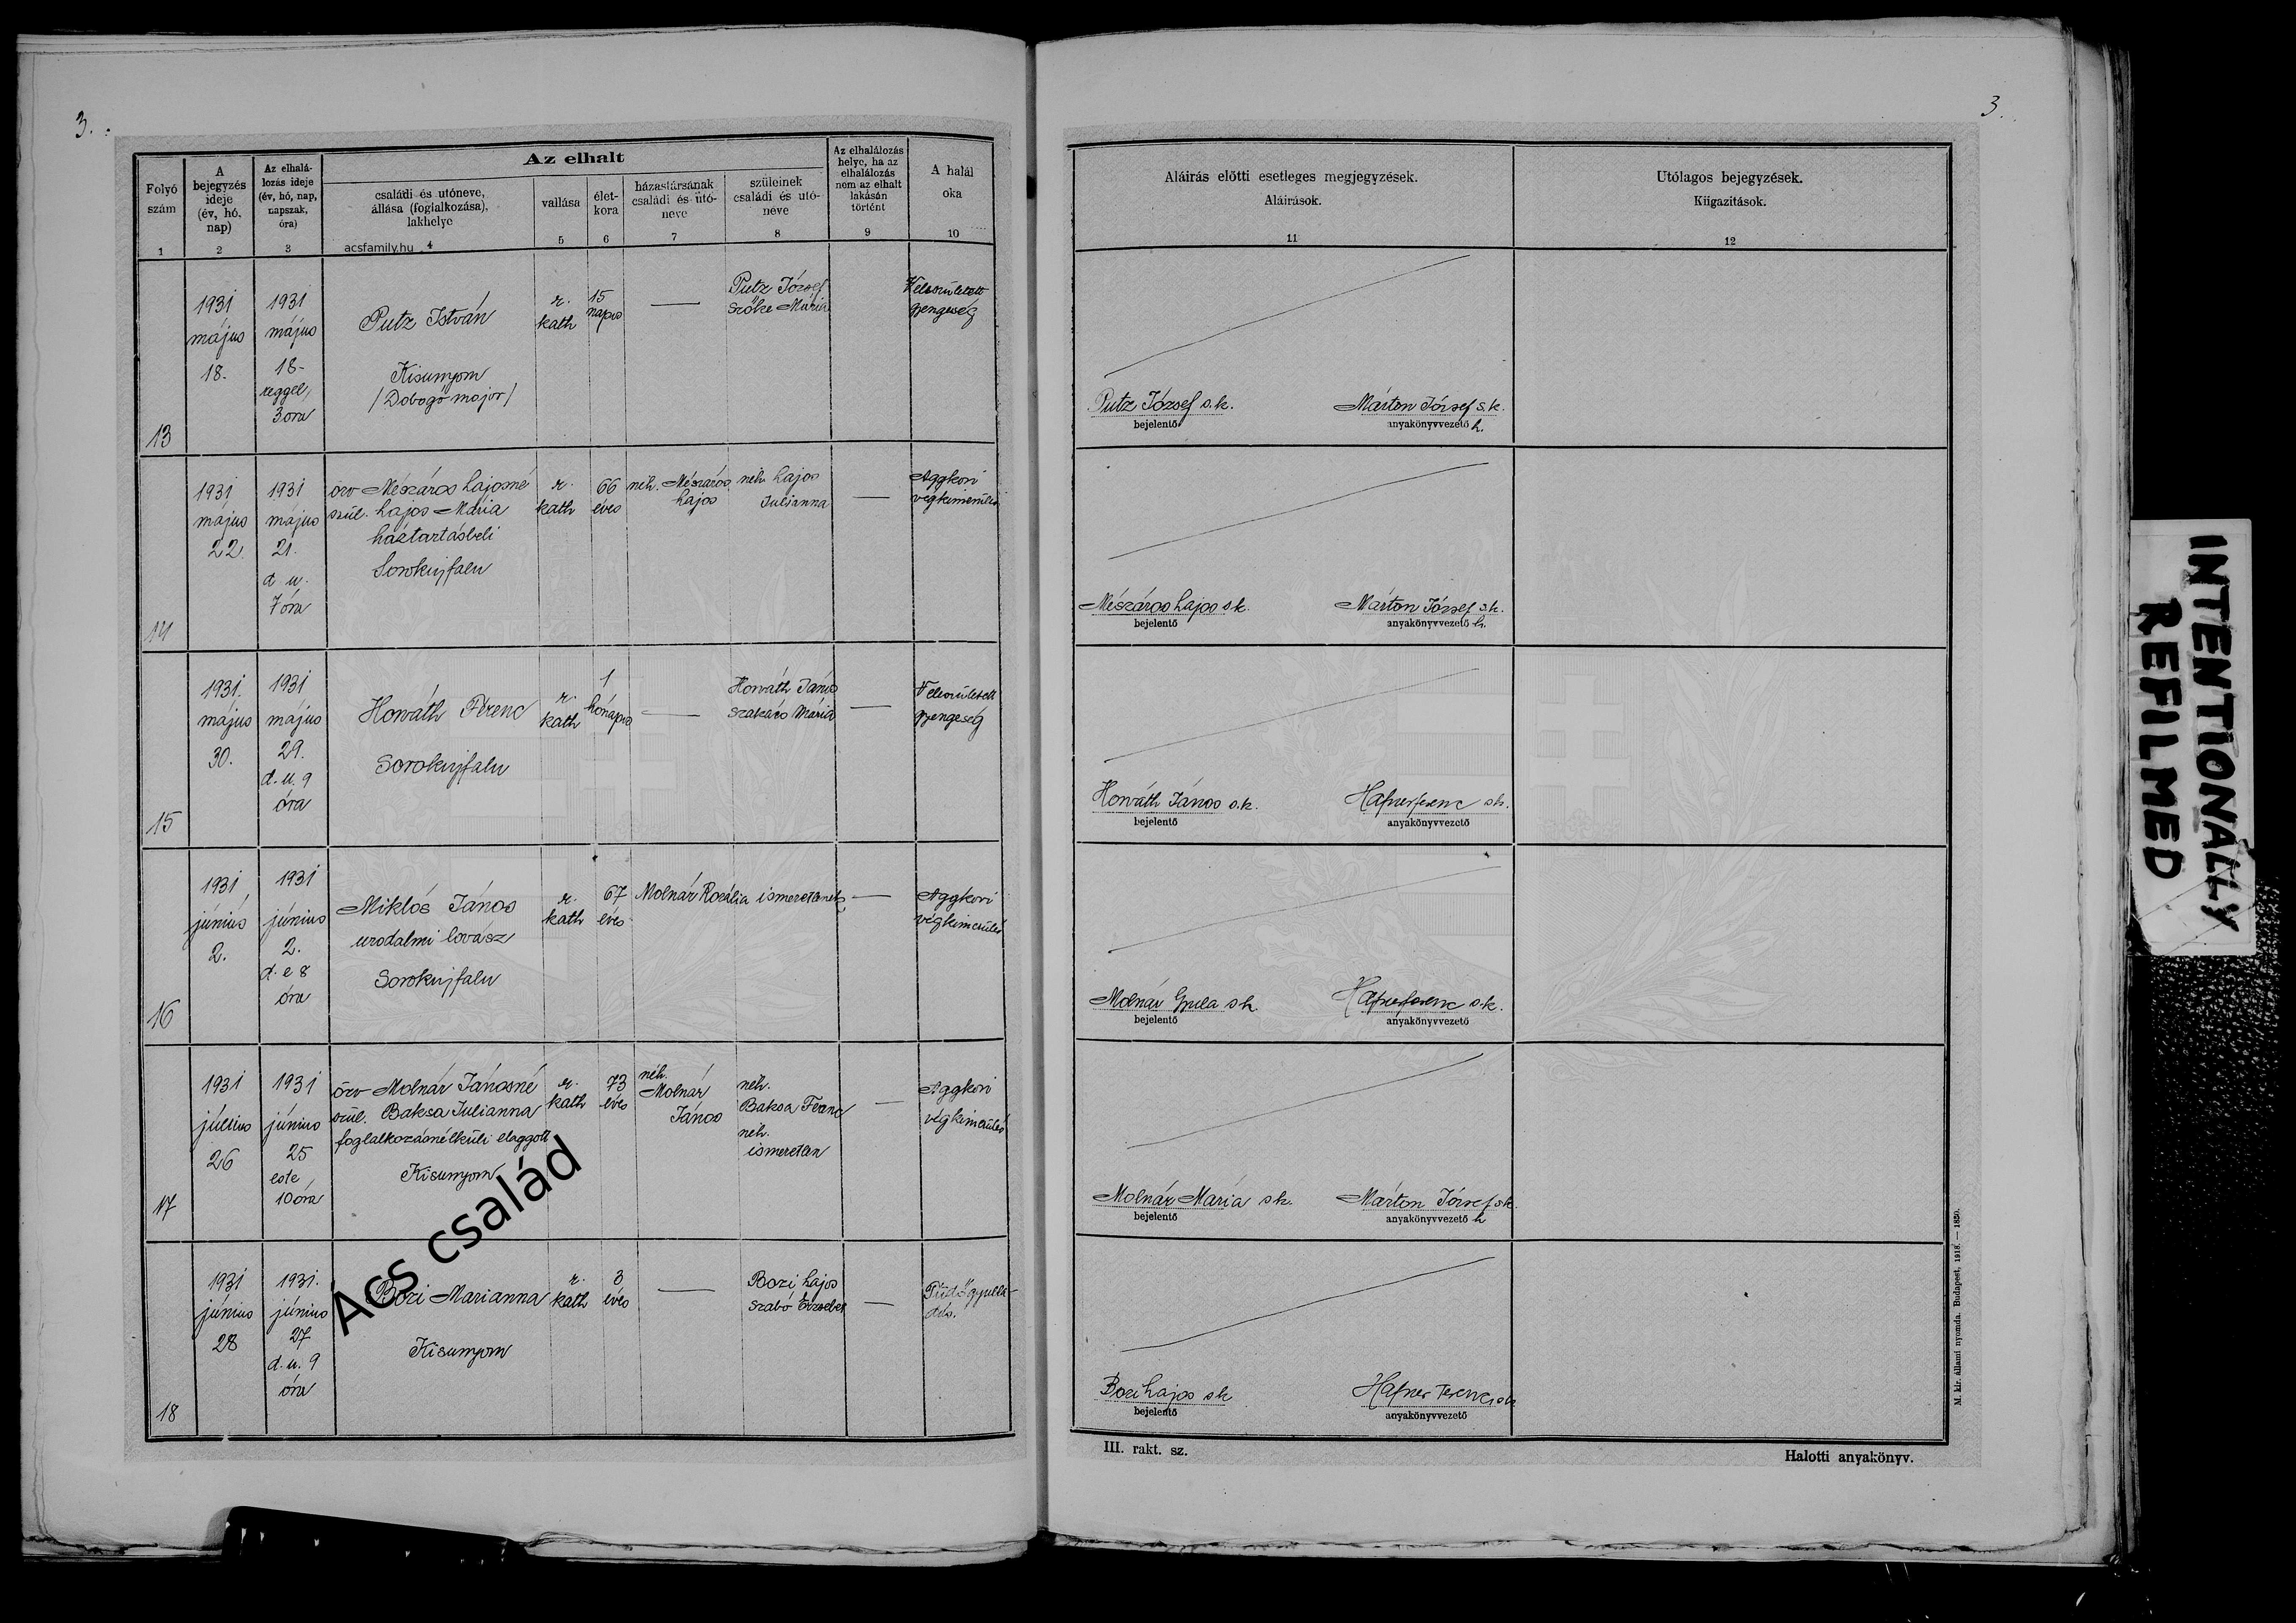 3.
Az elhalt
Folyó
szám
A
bejegyzés
ideje
(év, hó,
nap)
Az elhalá-
lozás ideje
(év, hó, nap,
napszak,
óra)
családi és utóneve,
állása (foglalkozása),
lakhelye
vallása
élet-
kora
házastársának
családi és utó-
neve
szüleinek
családi és utó-
neve
Az elhalálozás
helye, ha az
elhalálozás
nem az elhalt
lakásán
történt
A halál
oka
1 2 3 acsfamily.hu 4 5 6 7 8 9 10
13
1931
május
18.
1931
május
18-
reggel,
3 óra
Putz István
Kisunyom
/Dobogó major/
r.
kath
15
napos
Putz József
Szőke Mária
Veleszületett
gyengeség
14
1931
május
22.
1931
május
21.
d. u.
7 óra
özv Mészáros Lajosné
szül. Lajos Mária
háztartásbeli
Sorokujfalu
r.
kath
66
éves
néh. Mészáros
Lajos
néh Lajos
Julianna
Aggkori
végkimerülés
15
1931.
május
30.
1931
május
29.
d. u. 9
óra
Horváth Ferenc
Sorokujfalu
r.
kath
1
hónapos
Horváth János
Szakács Mária
Veleszületett
gyengeség
16
1931
június
2.
1931
június
2.
d. e 8
óra
Miklós János
urodalmi lovász
Sorokujfalu
r.
kath
67
éves
Molnár Rozália
ismeretlenek
Aggkori
végkimerülés
17
1931
július
26
1931
június
25
este
10 óra
özv Molnár Jánosné
szül. Baksa Julianna
foglalkozásnélküli elaggott
Kisunyom
r.
kath
73
éves
néh.
Molnár
János
néh.
Baksa Ferenc
néh.
ismeretlen
Aggkori
végkimerülés
18
1931
június
28
1931.
június
27
d. u. 9
óra
Bozi Marianna
Kisunyom
r.
kath
3
éves
Bozi Lajos
Szabó Erzsébet
Tüdőgyulla-
dás.
Ács család
3.
Aláirás előtti esetleges megjegyzések.
Aláirások.
11
Utólagos bejegyzések.
Kiigazitások.
12
Putz József s.k. Márton József s.k.
bejelentő anyakönyvvezető h.
Mészáros Lajos s.k. Márton József s.k.
bejelentő anyakönyvvezető h.
Horváth János s.k. Hafner Ferenc sk.
bejelentő anyakönyvvezető
Molnár Gyula sk. Hafner Ferenc s.k.
bejelentő anyakönyvvezető
Molnár Mária sk. Márton József sk.
bejelentő anyakönyvvezető h
Bozi Lajos sk Hafner Ferenc sk
bejelentő anyakönyvvezető
III. rakt. sz.
Halotti anyakönyv.
M. kir. állami nyomda. Budapest, 1918. — 1850.
INTENTIONALLY
REFILMED